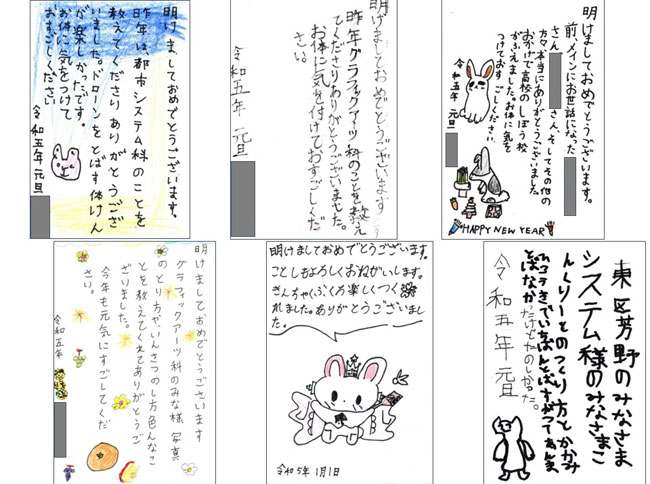 明けましておめでとうございます。
昨年は都市システム科のことを
教えてくださりありがとうござ
いました。ドローンをとばす体けん
が楽しかったです。
お体に気をつけて
おすごしください
令和五年 元旦
明けましておめでとうございます。
昨年グラフィックアーツ科のことを教え
てくださりありがとうございました。
お体に気を付けておすごしくだ
さい。
令和五年 元旦
明けましておめでとうございます。
前、メインにお世話になった
さん さん、そしてその他の
方々本当にありがとうございました
おかげで高校のしぼう校
がふえました。お体に気を
つけておすごしください。
令和五年 元旦
HAPPY NEW YEAR
明けましておめでとうございます
グラフィックアーツ科のみな様 写真
のし方色んなこ
とを教えて ありがとうご
ざりました。
今年も元気にすごしてくだ
さい。
令和五年
明けましておめでとうございます。
ことしもよろしくおねがいします。
さんちゃくぶくろ楽しくつく
れました。ありがとうございまし
た。
令和5年1月1日
東区芳野のみなさま
システム様のみなさまこ
んくりーとのつくり方とか
たのしかった。
令和五年 元旦